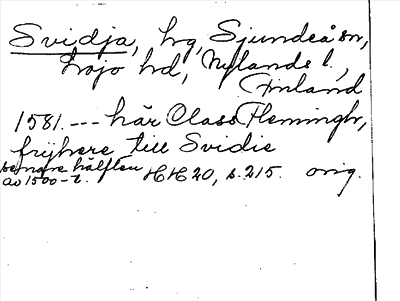 Svidja, hg, Sjundeå sn,
Lojo hd, Nylands l.,
Finland
1581. --- här Class Flemingh,
frijhere till Svidie
senare hälften
av 1500-t. HH 20, s. 215. orig.